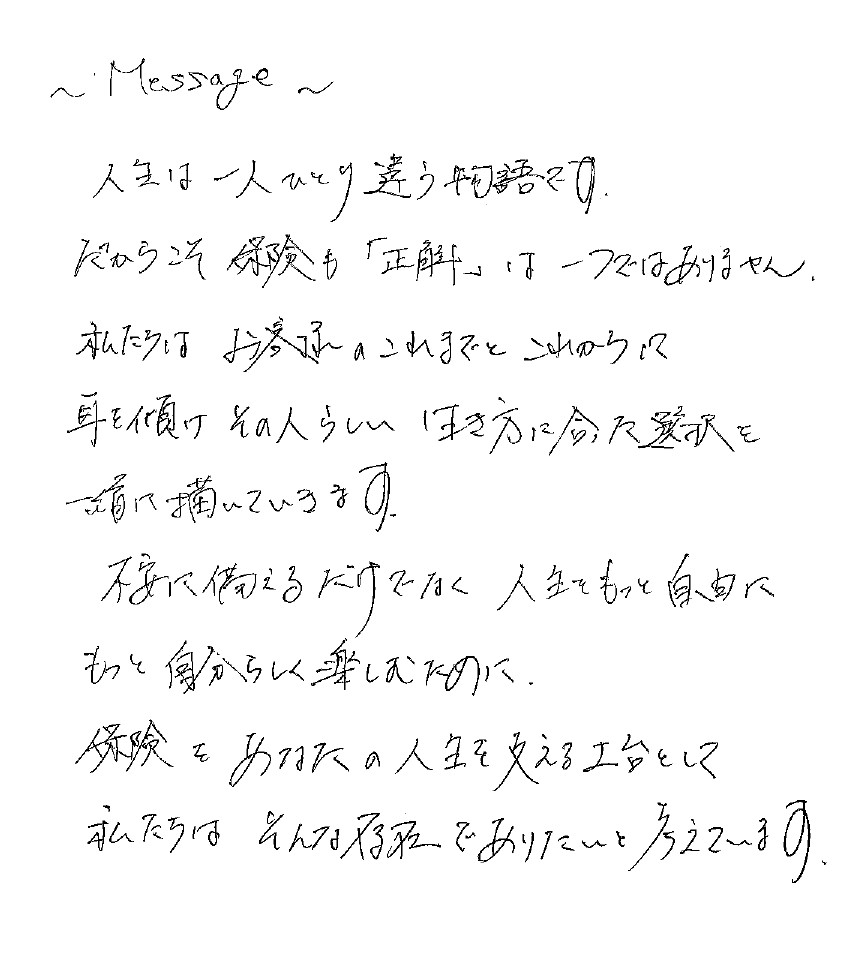 ～ Message ～
人生は一人ひとり違う物語です.
だからこそ 保険も「正解」は一つではありません.
私たちは お客様のこれまでと これからに
耳を傾け その人らしい 生き方に合った選択を
一緒に描いていきます.
不安に備えるだけでなく 人生をもっと自由に
もっと 自分らしく楽しむために.
保険を あなたの人生を支える土台として
私たちは そんな存在でありたいと考えています.